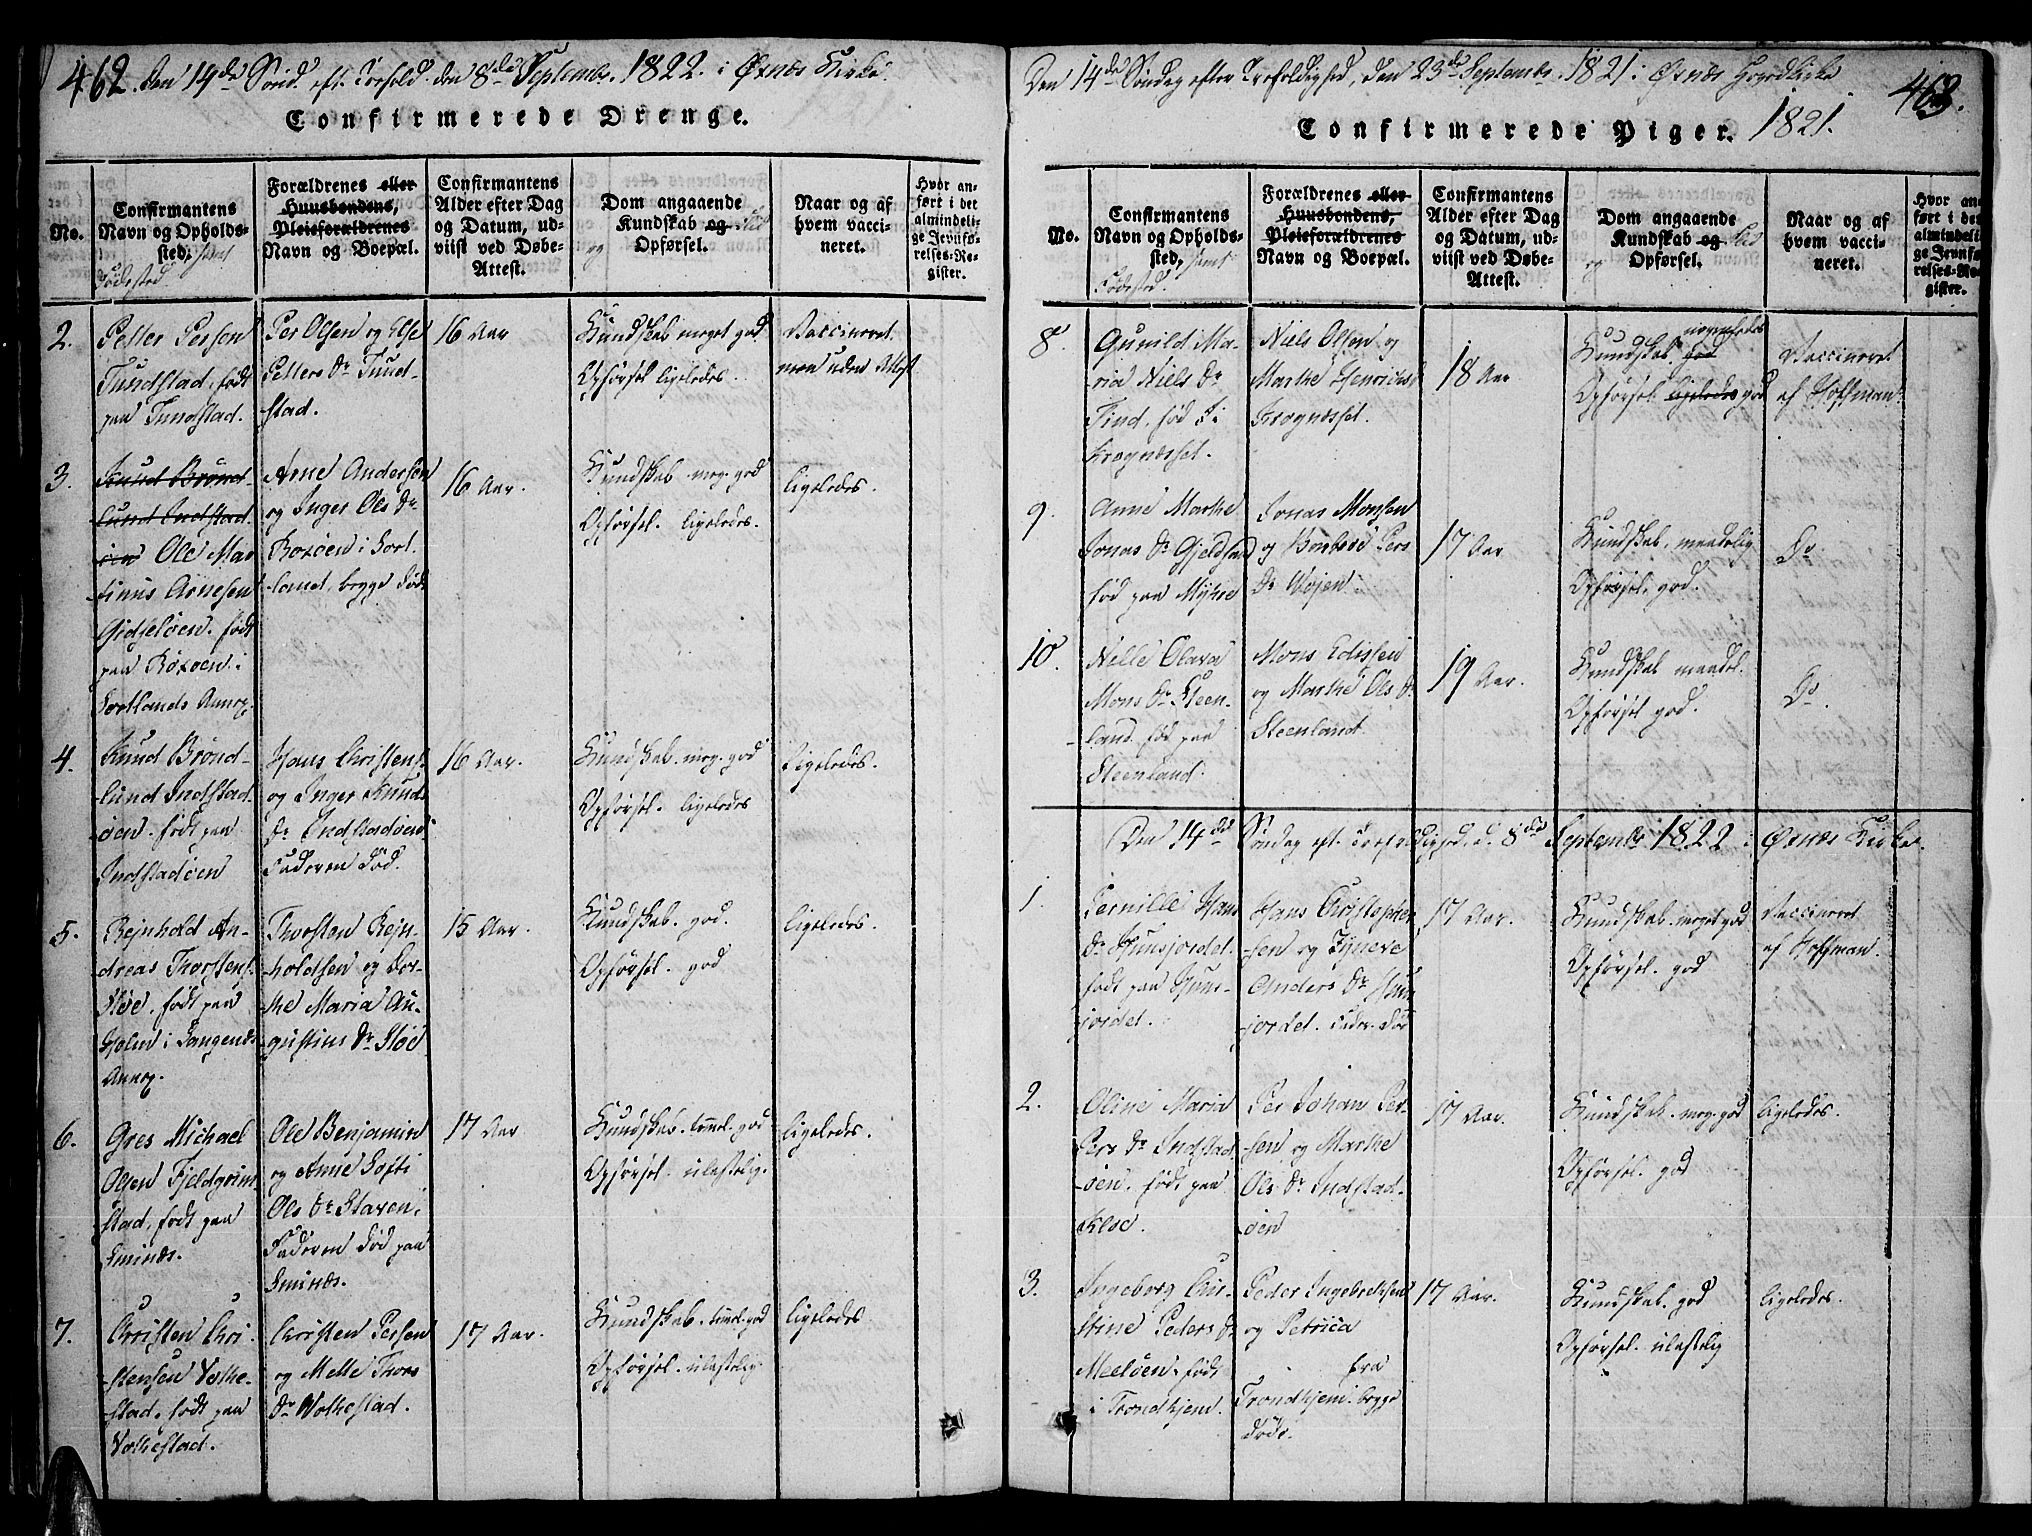 462. Den 14de Sønd. eft. Trefold. den 8de Septembr. 1822. i Øxnæs Kirke.
Confirmerede Drenge.
No.
Confirmantens
Navn og Opholds-
sted, samt
Fødested
Forældrenes eller
Huusbondens,
Pleieforældrenes
Navn og Boepæl.
Confirmantens
Alder efter Dag
og Datum, ud-
viist ved Døbe-
Attest.
Dom angaaende
Kundskab og Flid
og Opførsel.
Naar og af
hvem vacci-
neret.
Hvor an-
ført i det
almindeli-
ge Jevnfø-
relses-Re-
gister.
2.
Petter Persen
Tundstad, født
paa Tundstad.
Per Olsen og Else
Petters Dr Tund-
stad.
16 Aar
Kundskab meget god
Opførsel ligeledes.
Vaccineret
men uden Attest
3.
Knud Brønd-
lund Indstad-
øen Ole Mar-
tinus Arnesen
Gidsløen. født
paa Boxøen i
Sortlands Annex.
Arne Andersen
og Inger Ols Dr
Boxøen i Sort-
land, begge døde
16 Aar.
Kundskab. meg. god
Opførsel. ligeledes.
ligeledes.
4.
Knud Brønd-
lund Indstad-
øen. født paa
Indstadøen
Hans Christens.
og Inger Knuds
Dr Indstadøen.
Faderen død.
16 Aar.
Kundskab. meg. god
Opførsel. ligeledes
Ligeledes.
5.
Rejnhold An-
dreas Thorstens.
Støe. født paa
Holm i Langenes
Annex.
Thorsten Rejn-
holdsen og Dor-
the Maria Au-
gustinus Dr Støe
15 Aar.
Kundskab. god.
Opførsel. god
ligeledes.
6.
Gres Michael
Olsen Fjeldgrim-
stad, født paa
Smines.
Ole Benjamin
og Anne Softi
Ols Dr Staven,
Faderen død paa
Smines.
17 Aar
Kundskab. temel. god
Opførsel. ulastelig.
ligeledes.
7.
Christen Chri-
stensen Vothe-
stad. født paa
Vothestad.
Christen Persen
og Mette Thors
Dr Vothestad.
17 Aar.
Kundskab. temel. god
Opførsel. ulastelig.
ligeledes
Den 14de Søndag efter Trefoldighed, den 23de Septembr. 1821. i Øxnæs Hovedkirke
463.
Confirmerede Piger. 1821.
No.
Confirmantens
Navn og Opholds-
sted, samt
Fødested.
Forældrenes eller
Huusbondens,
Pleieforældrenes
Navn og Boepæl.
Confirmantens
Alder efter Dag
og Datum, ud-
viist ved Døbe-
Attest.
Dom angaaende
Kundskab og Flid
og Opførsel.
Naar og af
hvem vacci-
neret.
Hvor an-
ført i det
almindeli-
ge Jevnfø-
relses-Re-
gister.
8.
Gunild Ma-
ria Niels Dr
Tind. fød i
Krognæsset.
Niels Olsen og
Marthe Henrichs
Krognæsset.
18 Aar
Kundskab. god nogenledes
Opførsel. ligeledes god
Vaccineret
af Hoffman
9.
Anne Marthe
Jonas Dr Gjeldsand
fød paa Myhre
Jonas Monsen
og Pers
Dr
17 Aar
Kundskab. maadelig
Opførsel. god.
Do
10.
Nille Olava
Mons Dr Steen-
land. fød paa
Steenland
Mons Edissen
og Marthe Ols Dr
Steenland
19 Aar.
Kundskab maadel.
Opførsel god.
Do.
Den 14de Søndag eft. Trefoldighed. d. 8de Septembr 1822 i Øxnæs Kirke.
1.
Pernille Hans
Dr Hunsjordet.
født paa Huns-
jordet.
Hans Christophe-
sen og Zyneve
Anders Dr Huns-
jordet. Fader. død
17 Aar.
Kundskab. meget god
Opførsel. god
Vaccineret
af Hoffman.
2.
Oline Maria
Pers Dr Indstad-
øen. født paa
Kloe.
Per Johan Per-
sen og Marthe
Ols Dr Indstad-
øen
17 Aar.
Kundskab. meg. god
Opførsel. god
ligeledes.
3.
Ingeborg Chri-
stine Peders Dr
Meeløen. født
i Trondhjem.
Peder Ingebrethsen
og Petrica
fra
Trondhjem. begge
døde.
17 Aar.
Kundskab. god
Opførsel. ulastelig
ligeledes.